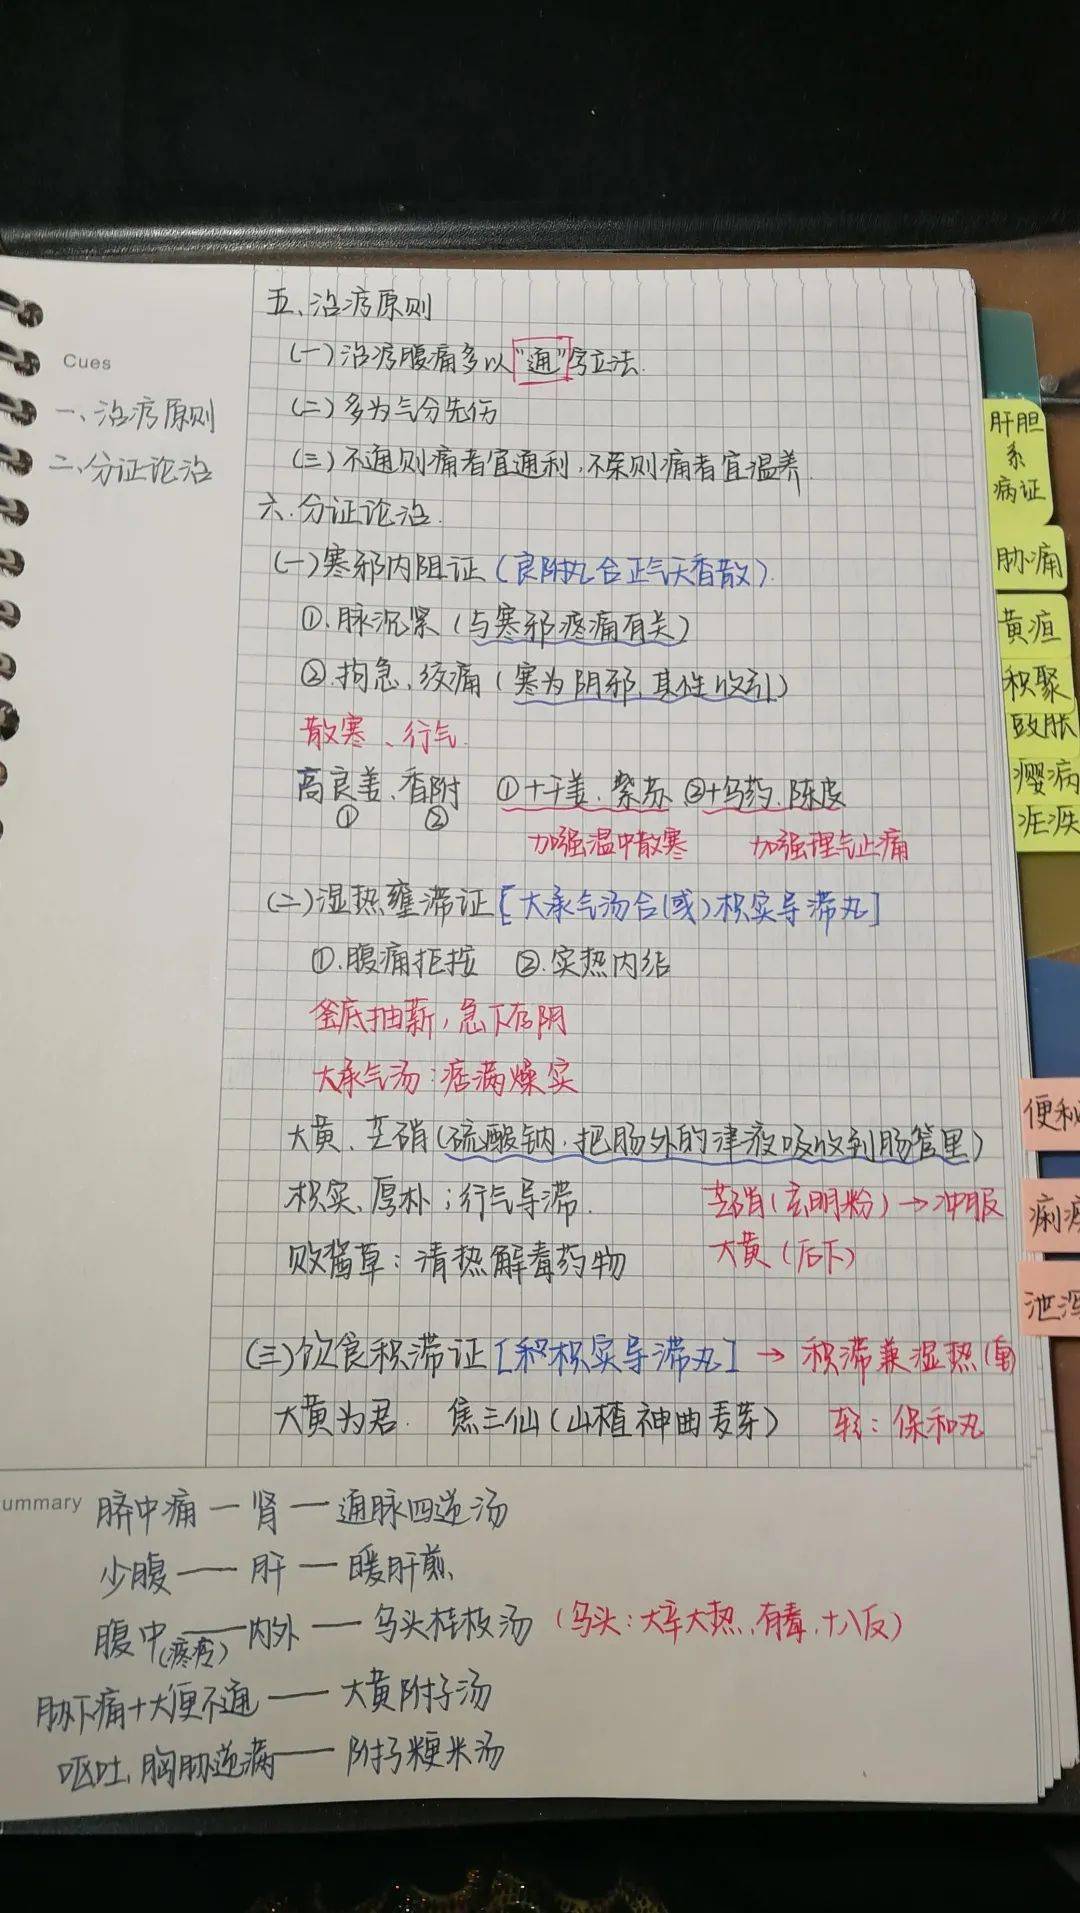 Cues
一、治疗原则
二、分证论治
五、治疗原则
(一)治疗腹痛多以"通"字立法.
(二)多为气分先伤
(三)不通则痛者宜通利,不荣则痛者宜温养.
六.分证论治.
(一)寒邪内阻证(良附丸合正气天香散).
①.脉沉紧(与寒邪疼痛有关)
②.拘急、绞痛(寒为阴邪,其性收引)
散寒、行气.
高良姜、香附 ①+干姜、紫苏 ②+乌药、陈皮
① ② 加强温中散寒 加强理气止痛
(二)湿热壅滞证[大承气汤合(或)枳实导滞丸]
①.腹痛拒按 ②.实热内结
釜底抽薪,急下存阴
大承气汤:痞满燥实
大黄、芒硝(硫酸钠,把肠外的津液吸收到肠管里)
枳实、厚朴;行气导滞. 芒硝(玄明粉)→冲服
败酱草:清热解毒药物 大黄(后下)
(三)饮食积滞证[枳实导滞丸]→积滞兼湿热(重)
大黄为君. 焦三仙(山楂神曲麦芽) 轻:保和丸
ummary
脐中痛—肾—通脉四逆汤
少腹——肝—暖肝煎
腹中(疼痛)——内外——乌头桂枝汤(乌头:大辛大热,有毒,十八反)
胁下痛+大便不通——大黄附子汤
呕吐,胸胁逆满——附子粳米汤
肝胆
系
病证
胁痛
黄疸
积聚
鼓胀
瘿病
疟疾
便秘
泄泻